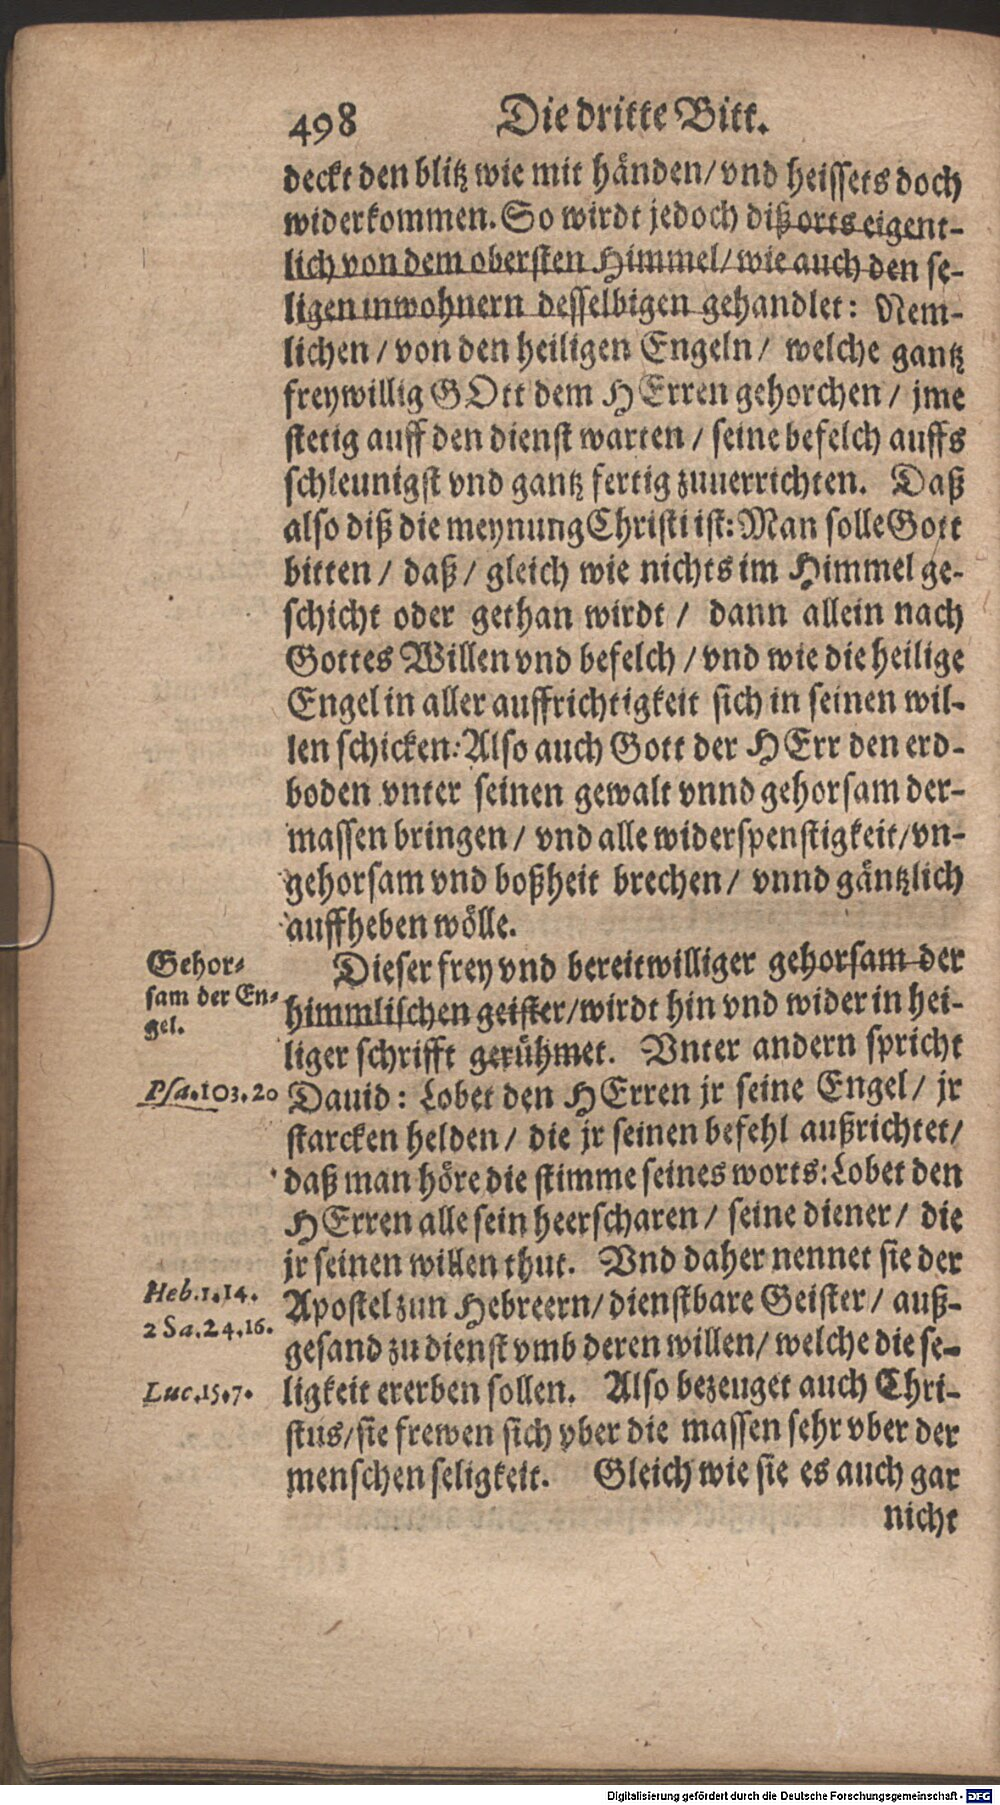 498 Die dritte Bitt.
deckt den blitz wie mit händen/ vnd heissets doch
widerkommen. So wirdt jedoch diß orts eigent-
lich von dem obersten Himmel/ wie auch den se-
ligen inwohnern desselbigen gehandlet: Nem-
lichen/ von den heiligen Engeln/ welche gantz
freywillig GOtt dem HErren gehorchen/ jme
stetig auff den dienst warten/ seine befelch auffs
schleunigst vnd gantz fertig zuuerrichten. Daß
also diß die meynung Christi ist: Man solle Gott
bitten/ daß/ gleich wie nichts im Himmel ge-
schicht oder gethan wirdt/ dann allein nach
Gottes Willen vnd befelch/ vnd wie die heilige
Engel in aller auffrichtigkeit sich in seinen wil-
len schicken: Also auch Gott der HErr den erd-
boden vnter seinen gewalt vnnd gehorsam der-
massen bringen/ vnd alle widerspenstigkeit/ vn-
gehorsam vnd boßheit brechen/ vnnd gäntzlich
auffheben wölle.
Gehor-
sam der En-
gel.
Dieser frey vnd bereitwilliger gehorsam der
himmlischen geister/ wirdt hin vnd wider in hei-
liger schrifft gerühmet. Vnter andern spricht
Psa.103.20
Dauid: Lobet den HErren jr seine Engel/ jr
starcken helden/ die jr seinen befehl außrichtet/
daß man höre die stimme seines worts: Lobet den
HErren alle sein heerscharen/ seine diener/ die
jr seinen willen thut. Vnd daher nennet sie der
Heb.1.14.
2 Sa.24.16.
Apostel zun Hebreern/ dienstbare Geister/ auß-
gesand zu dienst vmb deren willen/ welche die se-
Luc.15.7.
ligkeit ererben sollen. Also bezeuget auch Chri-
stus/ sie frewen sich vber die massen sehr vber der
menschen seligkeit. Gleich wie sie es auch gar
nicht
Digitalisierung gefördert durch die Deutsche Forschungsgemeinschaft - DFG